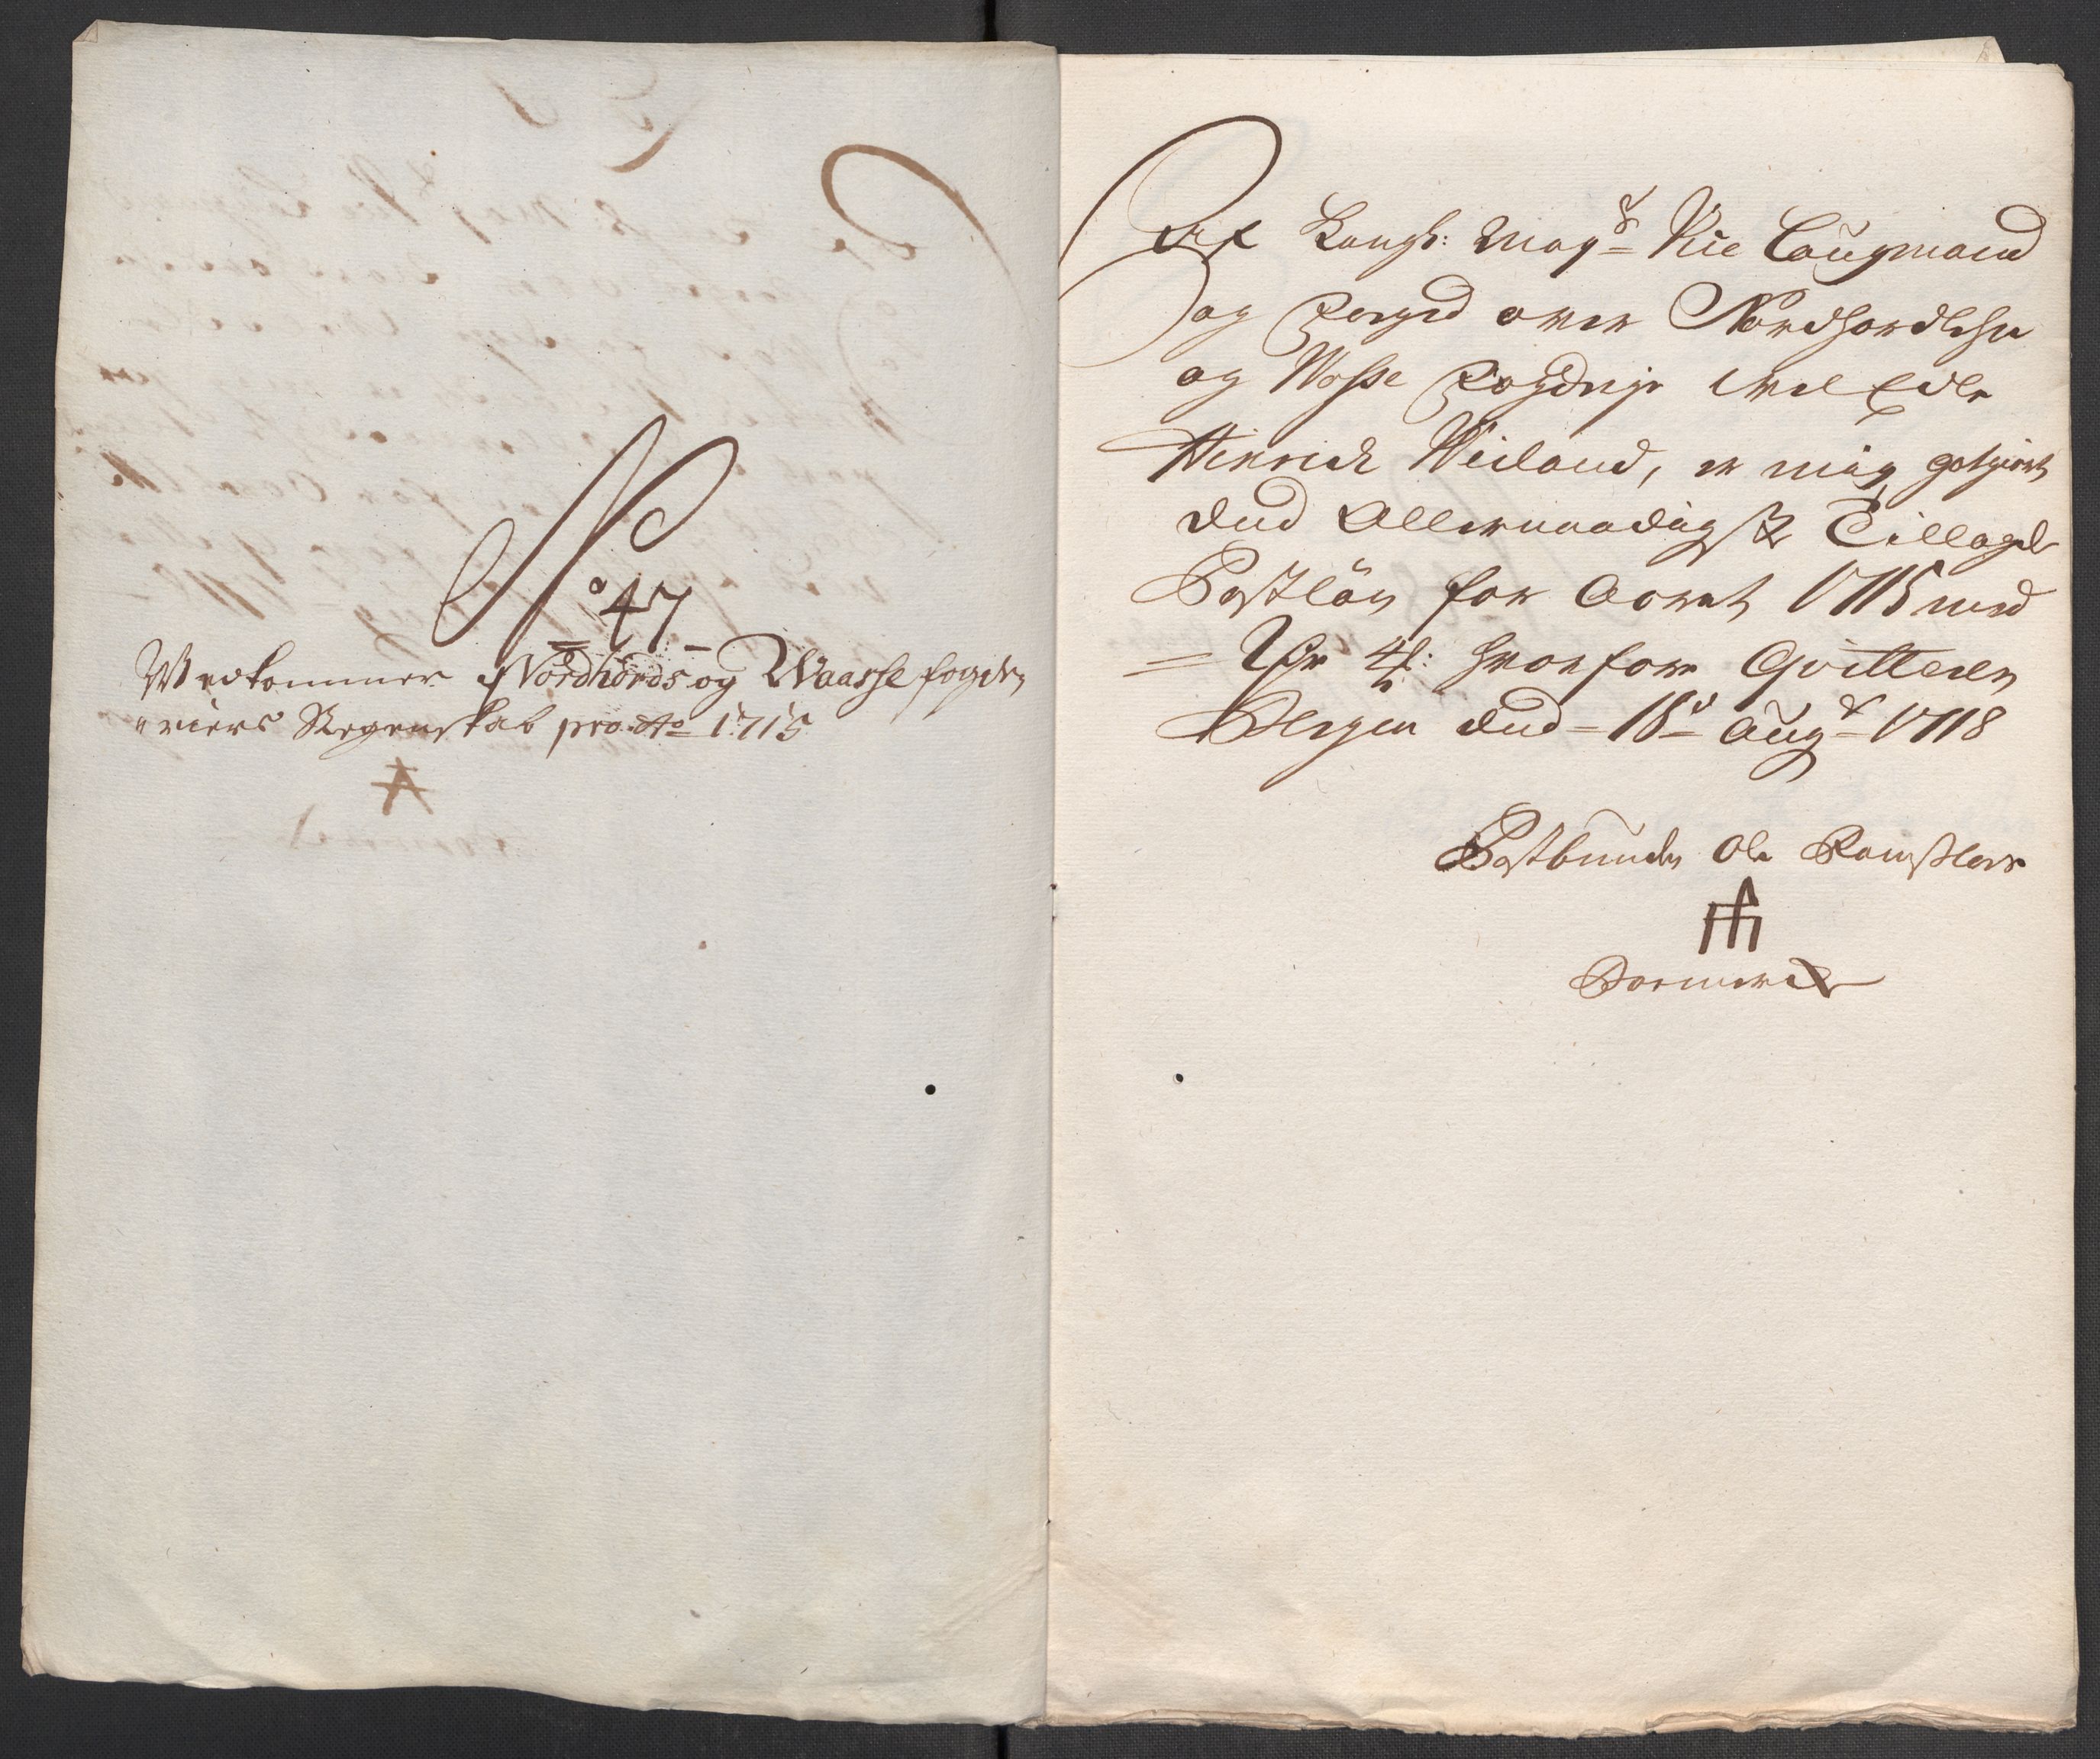 No 47
Vedkommer Nordhords og Waasse fogde,,
,,riers Regenskab pro Ao 1715
A
Af Kongl: Mayts Vice Laugmand
og Foged over Nordhordlehn
og Wosse Fogderje Wel Edle
Henrich Weiland, er mig gotgiort
dend Allernaadigste Tillagde
Postløn for Aaret 1715 med
= Ifr 4 ß: hvorfore Qvitteres
Bergen dend 18de Augt 1718
Postbunden Ole Ramsler